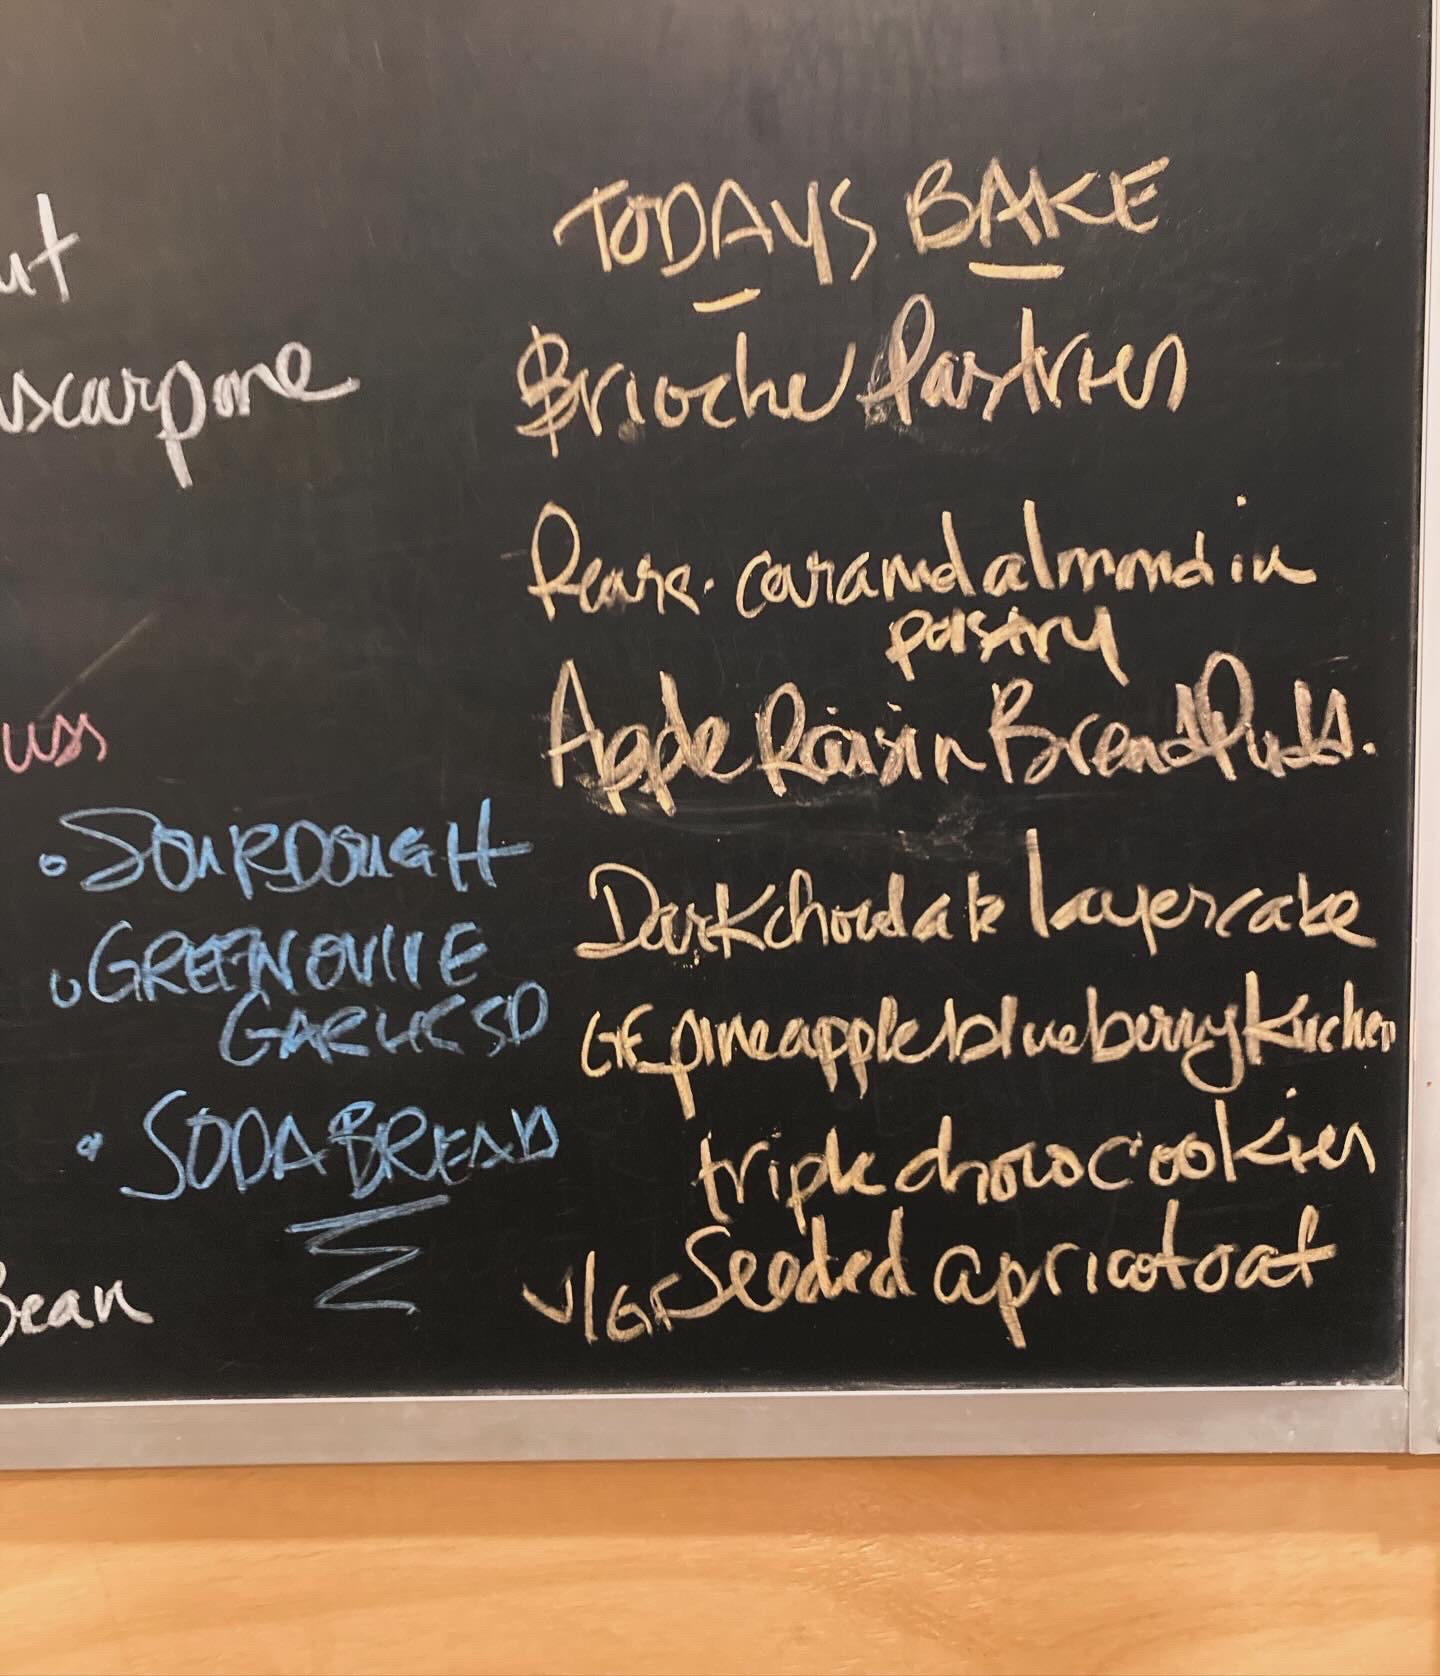 TODAYS BAKE
Brioche Pastries
caramel almond in
pastry
Apple Raisin Bread Pudd.
Dark chocolate layer cake
GF pineapple blueberry Kuchen
triple choco cookies
V/GF Seeded apricot oat
SOURDOUGH
GREEN OLIVE
GARLIC SD
SODA BREAD
Bean